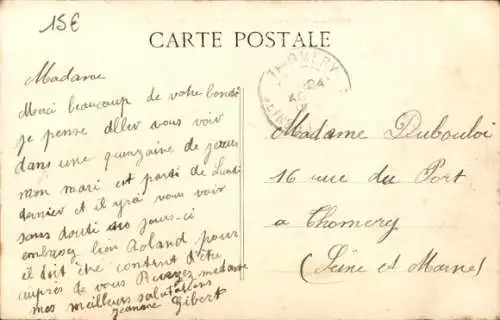 15€
CARTE POSTALE
THOMERY
Madame
Merci beaucoup de votre bonté
je pense aller vous voir
dans une quinzaine de jours
mon mari est parti de Lundi
dernier et il y rà vous voir
sans doute ces jours-ci
embrassez bien Roland pour
il doit être content d'être
auprès de vous Recevez madame
mes meilleurs salutations
Jeanne Gibert
Madame Dubouloi
16 rue du Port
a Thomery
(Seine et Marne)